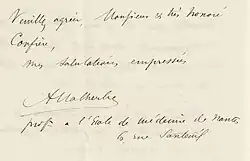 Veuillez agréer, Monsieur et très honoré
Confrère,
mes salutations empressées
A Malherbe
profr à l'École de médecine de Nantes
6 rue Santeuil